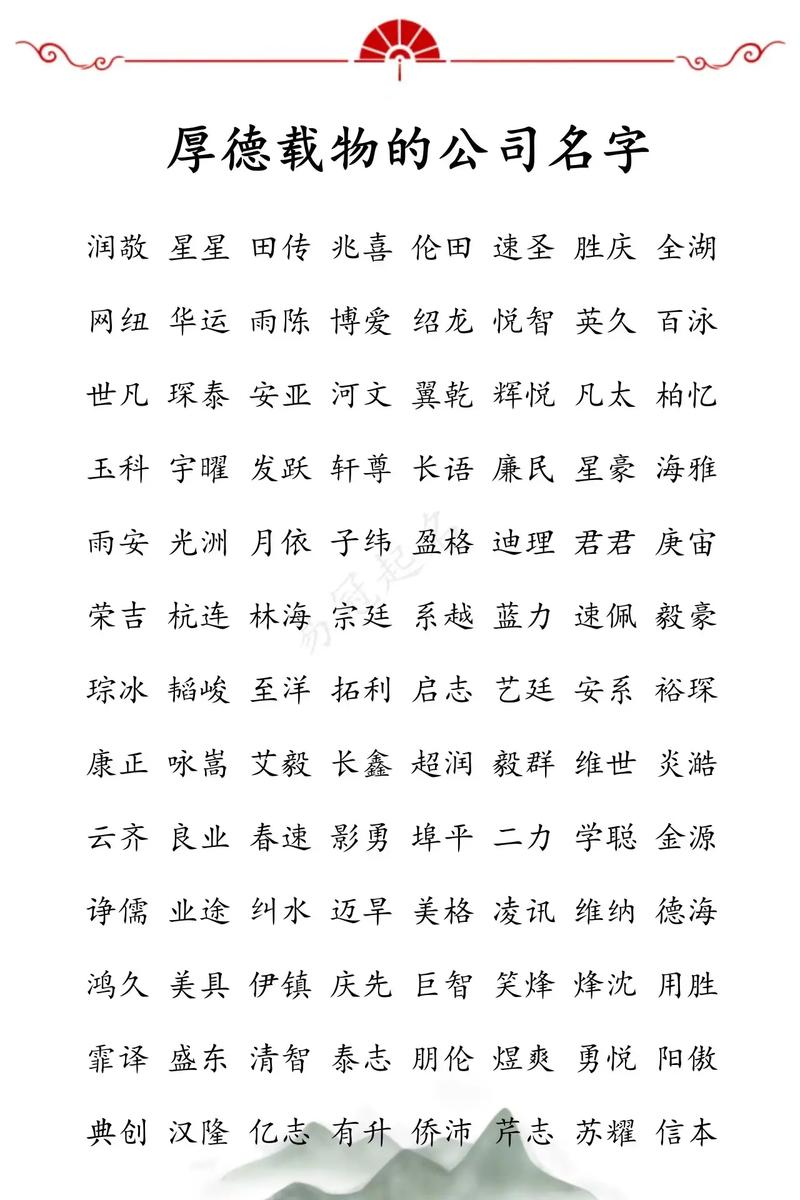 厚德载物的公司名字
润敬 星星 田传 兆喜 伦田 速圣 胜庆 全湖
网纽 华运 雨陈 博爱 绍龙 悦智 英久 百泳
世凡 琛泰 安亚 河文 翼乾 辉悦 凡太 柏忆
玉科 宇曜 发跃 轩尊 长语 廉民 星豪 海雅
雨安 光洲 月依 子纬 盈格 迪理 君君 庚宙
荣吉 杭连 林海 宗廷 系越 蓝力 速佩 毅豪
琮冰 韬峻 至洋 拓利 启志 艺廷 安系 裕琛
康正 咏嵩 艾毅 长鑫 超润 毅群 维世 炎澔
云齐 良业 春速 影勇 埠平 二力 学聪 金源
诤儒 业途 纠水 迈早 美格 凌讯 维纳 德海
鸿久 美具 伊镇 庆先 巨智 笑烽 烽沈 用胜
霏译 盛东 清智 泰志 朋伦 煜爽 勇悦 阳傲
典创 汉隆 亿志 有升 侨沛 芹志 苏耀 信本